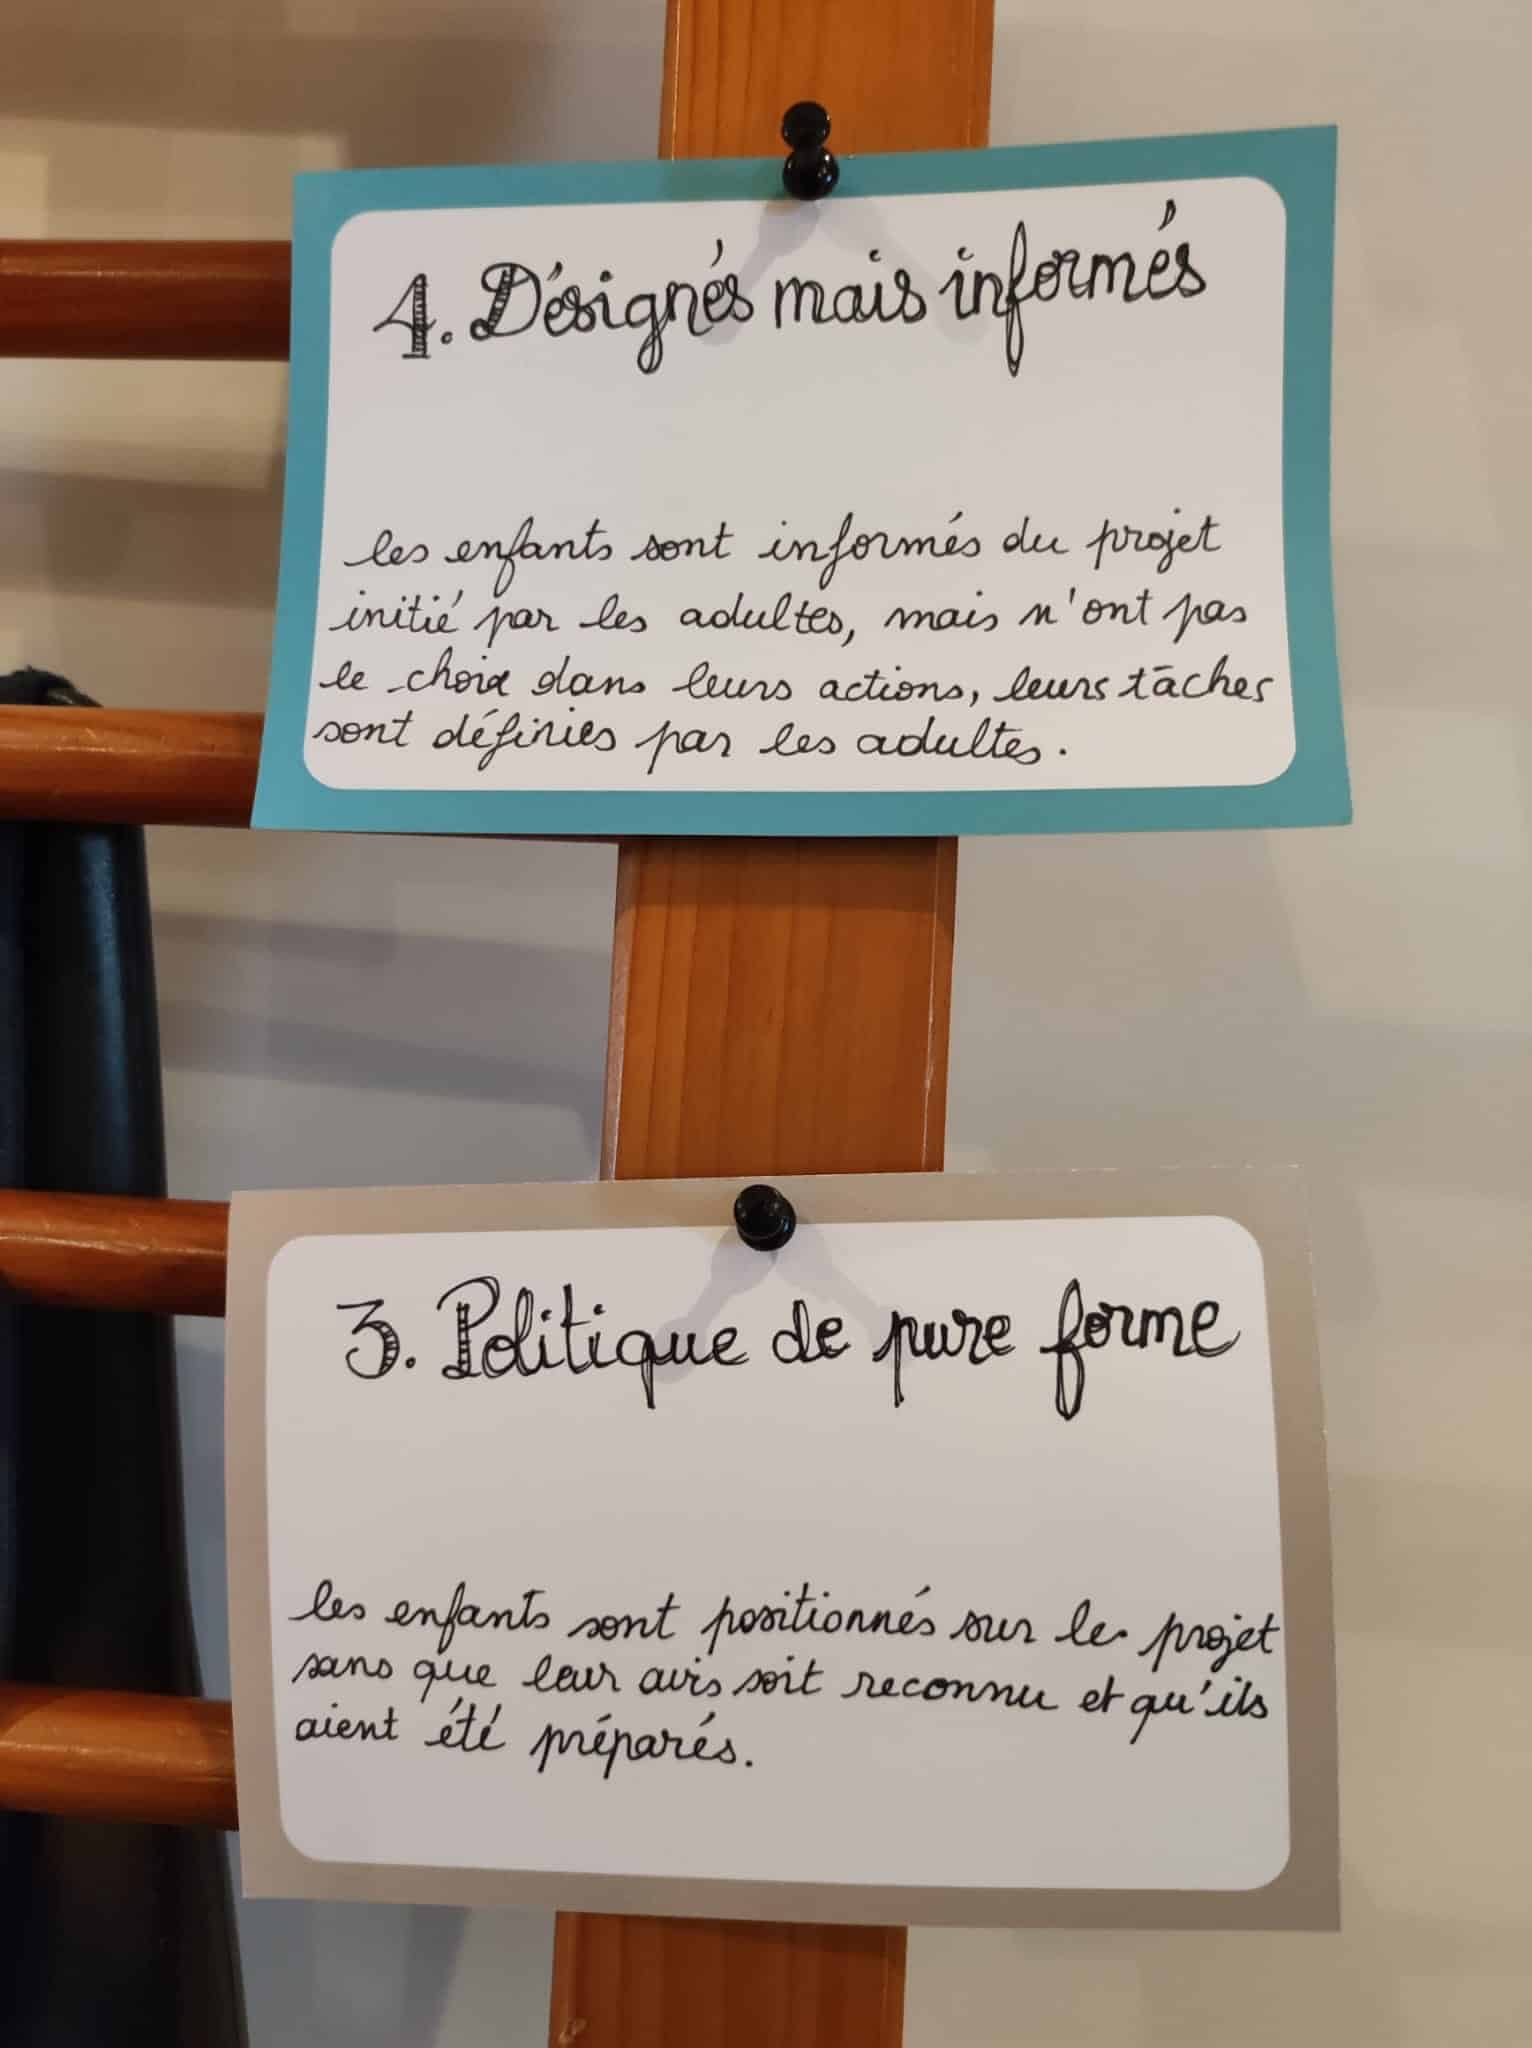 4. Désignés mais informés
les enfants sont informés du projet
initié par les adultes, mais n'ont pas
le choix dans leurs actions, leurs tâches
sont définies par les adultes.
3. Politique de pure forme
les enfants sont positionnés sur le projet
sans que leur avis soit reconnu et qu'ils
aient été préparés.